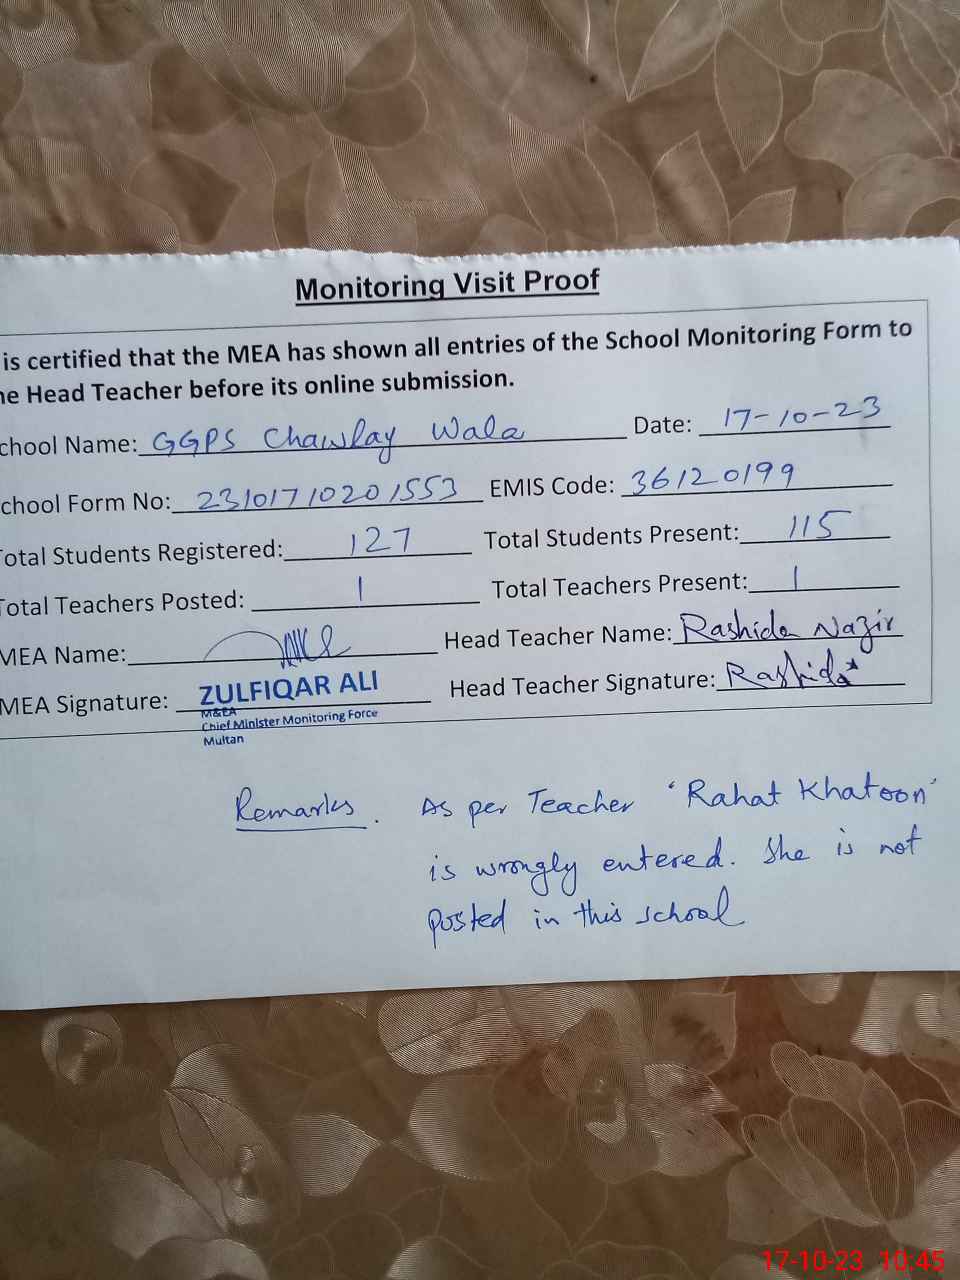 Monitoring Visit Proof
is certified that the MEA has shown all entries of the School Monitoring Form to
he Head Teacher before its online submission.
chool Name: GGPS Chawlay Wala Date: 17-10-23
chool Form No: 23101710201553 EMIS Code: 36120199
Total Students Registered: 127 Total Students Present: 115
Total Teachers Posted: 1 Total Teachers Present: 1
MEA Name: Head Teacher Name: Rashida Nazir
MEA Signature: ZULFIQAR ALI Head Teacher Signature: Rashida
M&EA
Chief Minister Monitoring Force
Multan
Remarks. As per Teacher 'Rahat Khatoon'
is wrongly entered. She is not
posted in this school
17-10-23 10:45